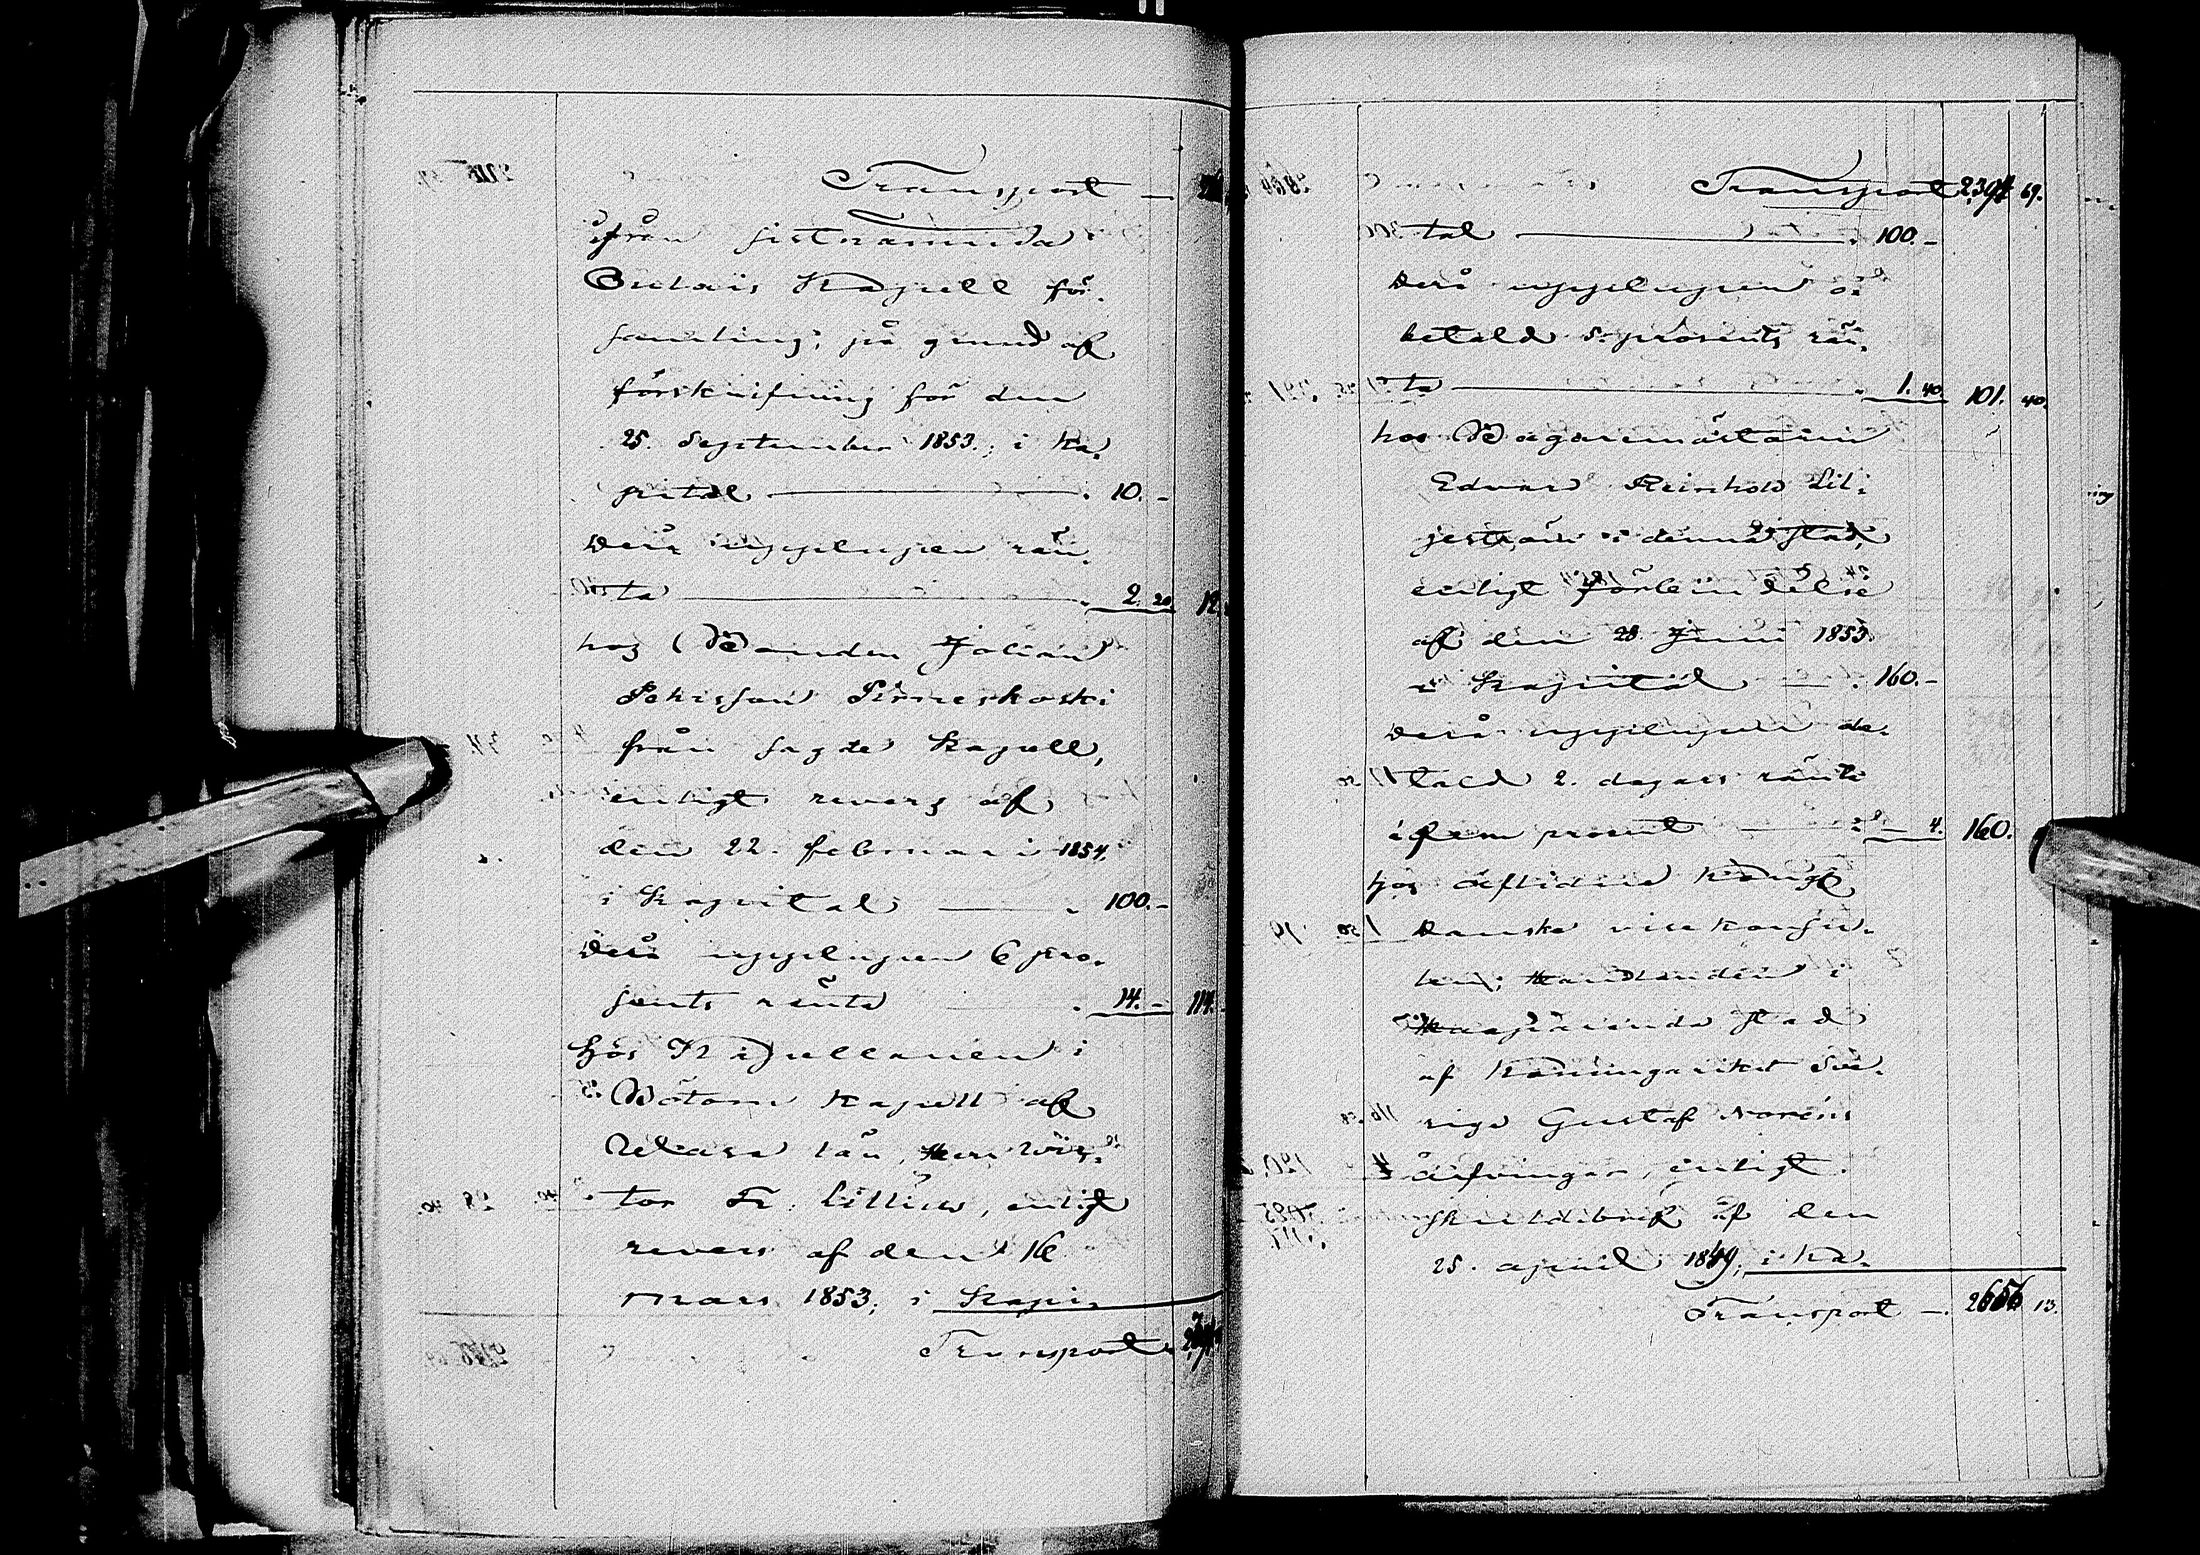 Transport —
ifrån sistnämnda
Kapell för-
samling; på grund af
förskrifning för den
25. September 1853.; i Ka-
pital — 10. –
Derå upplupen rän-
ta — 2. 20 12.
hos Bonden Johan
Pehrsson Pirneskoski
från sagde Kapell,
enligt revers af
den 22. februari 1854,
i Kapital — 100. –
Derå upplupen 6 pro-
sents ränta 14. – 114.
hos Kapellanen i
Kapell af
län, Herr
tor Fr. Lillius, enligt
revers af den 16
Mars 1853; i Kapi-
Transport
Transport 2,394 69.
tal — 100. –
Derå upplupen o-
betald 5. prosents rän-
ta — 1. 40. 101. 40.
hos Bagaremästaren
Edvard Reinhold Lil-
jeström i denna stad,
enligt förbindelse
af den 28 Juni 1853
i Kapital — 160. –
Derå upplupen be-
tald 2. dagars ränta
à fem prosent — 4. 160.
hos aflidne Kongl.
Danske vice Konsu-
len; Handlanden i
Haaparanda stad
af Konungariket Sve-
rige Gustaf Noréns
arfvingar, enligt
skuldebref af den
25. april 1849; i Ka-
Transport — 2656 13.